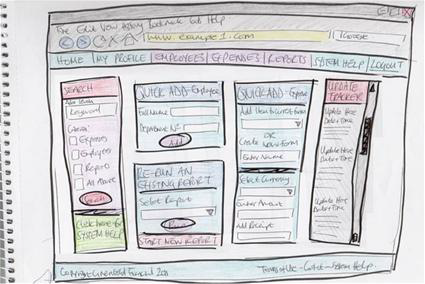 File Edit View History Bookmarks Tools Help
www.example1.com
HOME
MY PROFILE
EMPLOYEES
EXPENSES
REPORTS
SYSTEM HELP
LOGOUT
SEARCH
Keyword
Area
Expenses
Employees
Reports
All Above
Search
Click here for
SYSTEM HELP
QUICK ADD - Employee
Full Name
Department No
Add
RE-RUN AN
EXISTING REPORT
Select Report
Run
START NEW REPORT
QUICK ADD - Expense
Add Item to Current form
OR
Create New form
Enter Name
Select Currency
Enter Amount
Add Receipt
UPDATE
TRACKER
Update Here
Date + Time
Update Here
Date + Time
Update Here
Date + Time
Copyright Greenfield Financial 2011
Terms of Use - Contact - System Help.